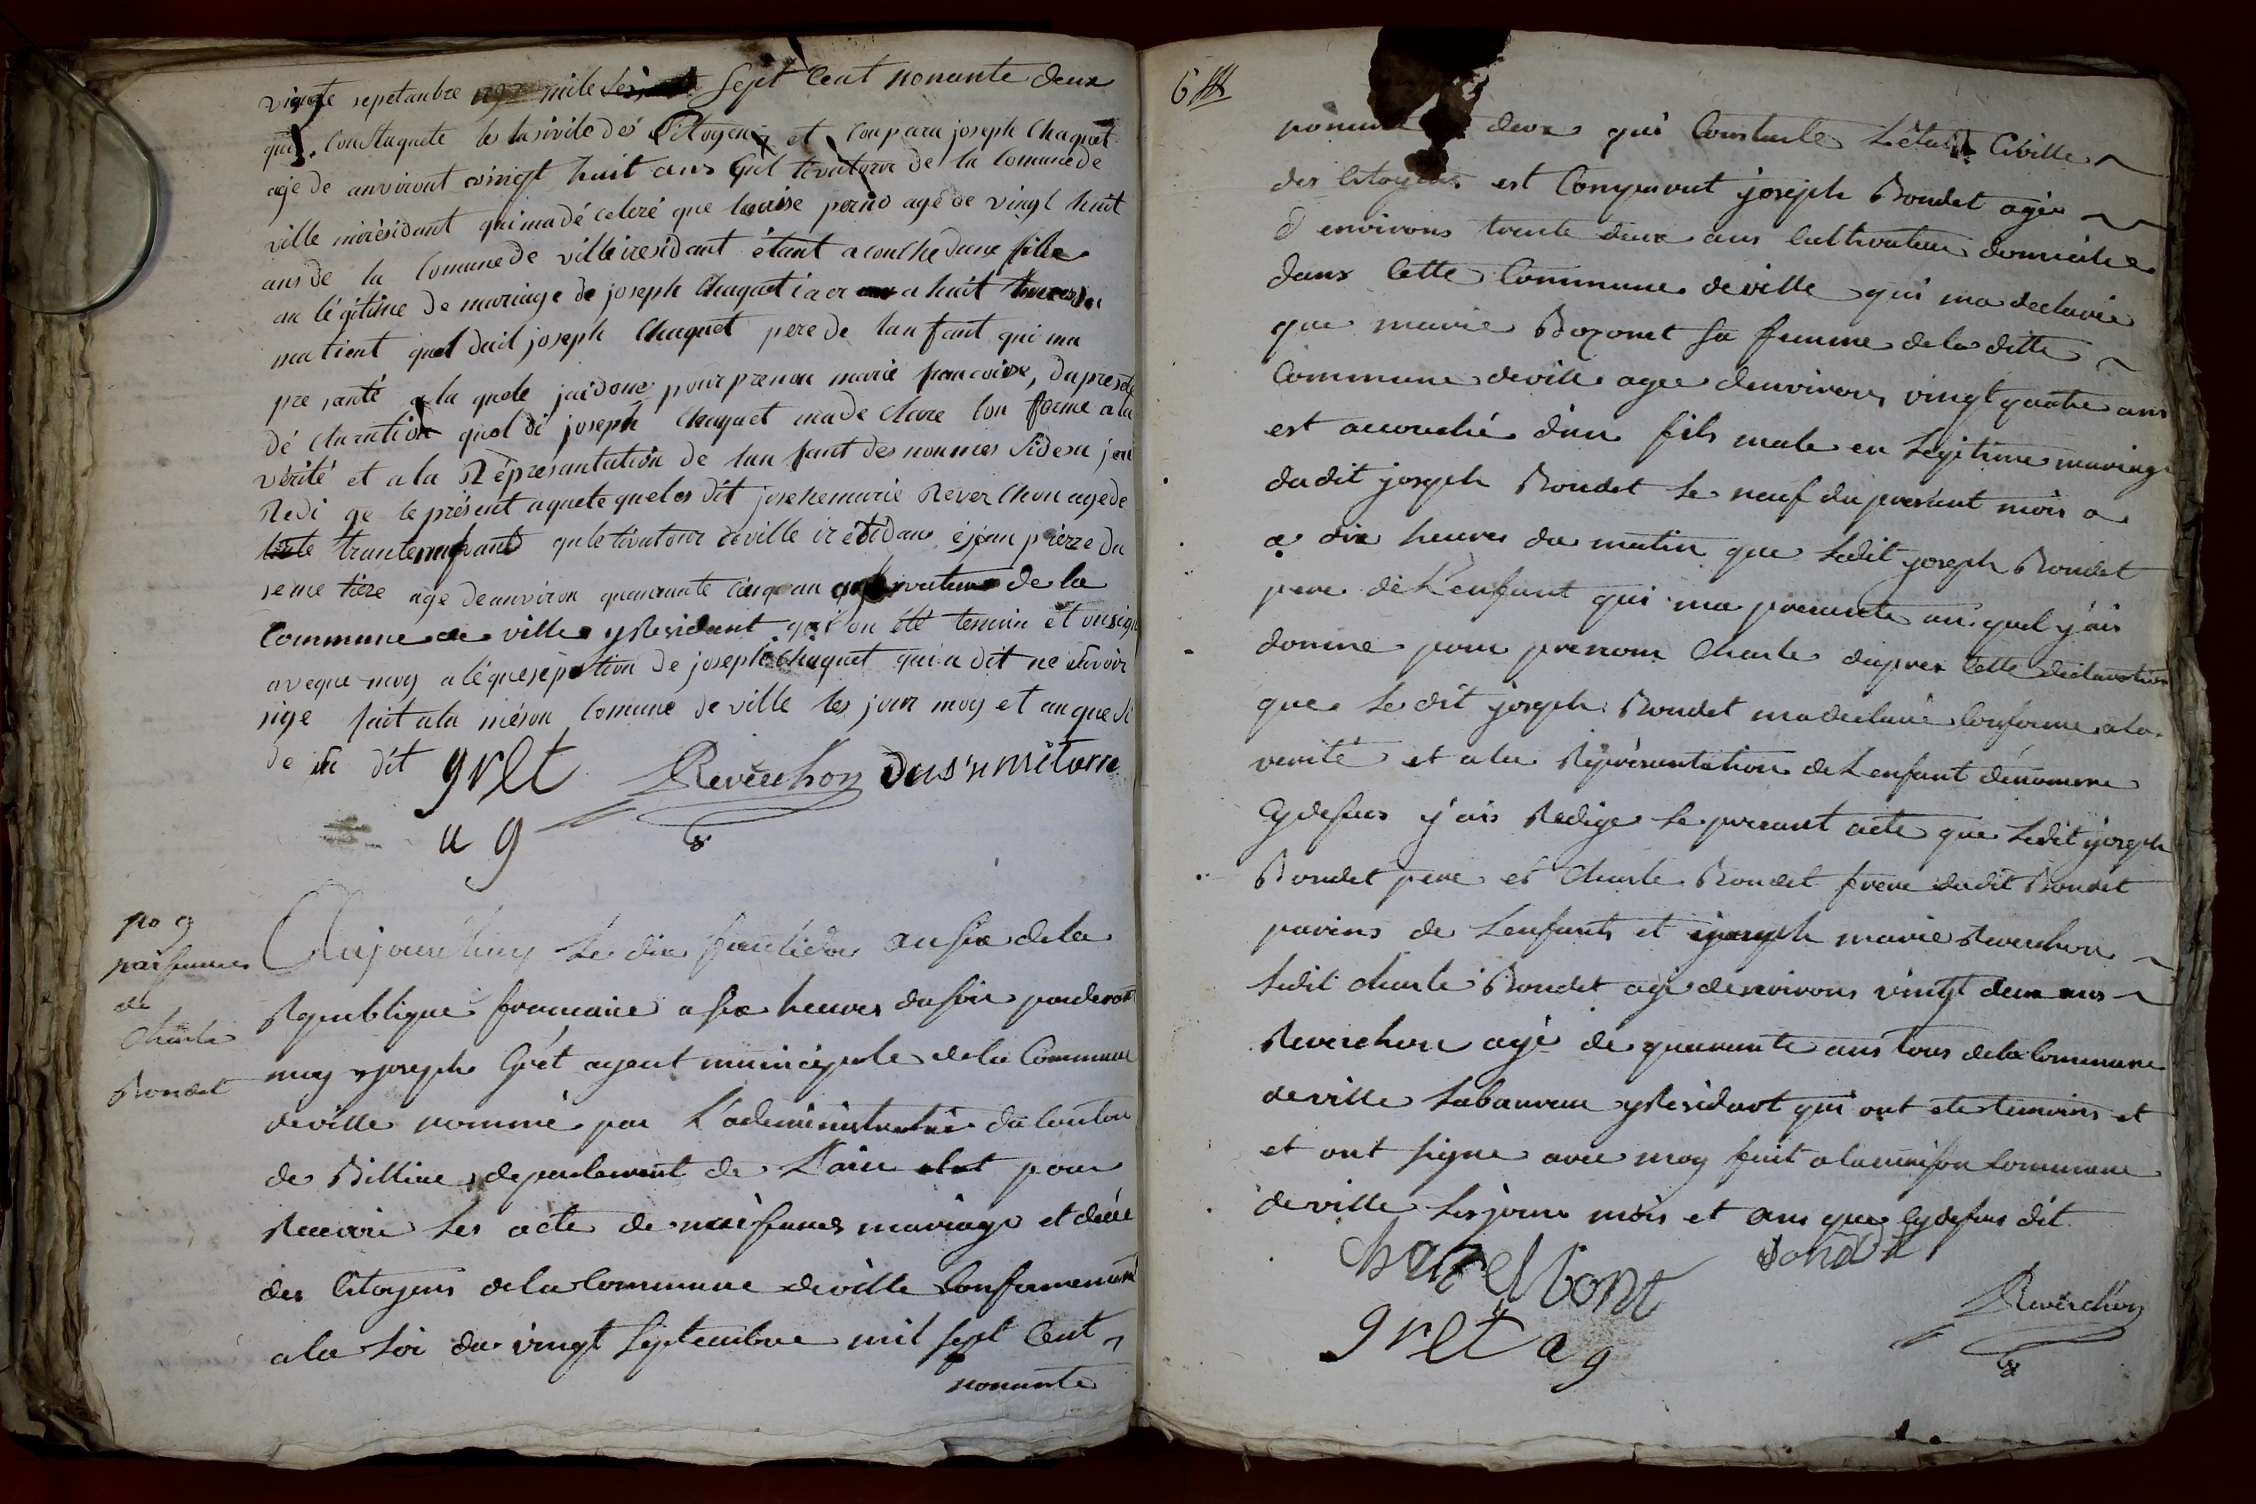 vingte sepetanbre mile Sept Cent nonante deux
qui Constaquete le tasivile dés Sitogen et Conpara joseph Chaquet
age de anviront vingt huit ans qul tevatorn de la Comune de
ville irrésidant quimadé celeré que lauise pernod agé de vingt huit
ans de la Comune de ville iresidant étant acouche dune fille
an légitime de mariage de joseph Chaquet a huit heures du
matient quel duit joseph Chaquet pere de lanfant qui ma
présanté a la quele jaidoné pour prenon marie francoise, dapres
dé claration quel di joseph Chaquet made Clare Con forme ala
vérité et a la Réprésantation de lanfant des nonmes Sidesu jai
Redi ge le présent aquete queles dit josehemarie Rever Chon agede
trantenufvans quletivatour deville irésidans ejan pierre du
seme tiere age deanviron quarante cinq an de la
Commune de ville y Residant qui on été temoin et onsigné
aveque moy a léquesepstion de joseph Chaquet qui a dit ne savoir
sige fait ala méson Comune de ville les jour moy et an que si
de su dit grlt Reverchon
a g
no 9
naissances
de
Charle
Bondet
Aujourdhuy Le dix fructidor an six de la
Republique francaise a six heures du soir pardevant
moy joseph Grét agent municipale de la Commune
de ville nommé par L'administration du Canton
de Billiac, departement de Lain pour
Recevoir les acte de naissances mariage et décé
des Citoyens de la Commune deville Conformement
a la Loi du vingt Septembre mil sept Cent
nonante
6
nonante deux qui Constate L'état Civille
des Citoyens est Comparut joseph Bondet agée
d'environs trente deux ans Cultivateur domicilie
dans Cette Commune de ville qui ma declarée
que marie Bozonet sa femme de la ditte
Commune deville agee denvirons vingt quatre ans
est accouché d'un fils male en Legitime mariage
dudit joseph Bondet le neuf du present mois a
a dix heures du matin que Ledit joseph Bondet
pere de Lenfant qui ma presente au quel j'ais
donne pour prenom Charle dapres Cette declaration
que le dit joseph Bondet ma declaré Conforme ala
verité et a la Représentation de Lenfant dénommé
Cydessus j'ais Redige le present acte que Ledit joseph
Bondet pere et Charle Bondet frere dudit Bondet
parins de Lenfants et joseph marie Reverchon
Ledit charle Bondet agé denvirons vingt deux ans
Reverchon agé de quarante ans tous de la Commune
de ville y Residant qui ont ete temoins et
et ont signe avec moy fait a la maison Commune
de ville les jours mois et ans que Cydessus dit
Reverchon
grlt a g